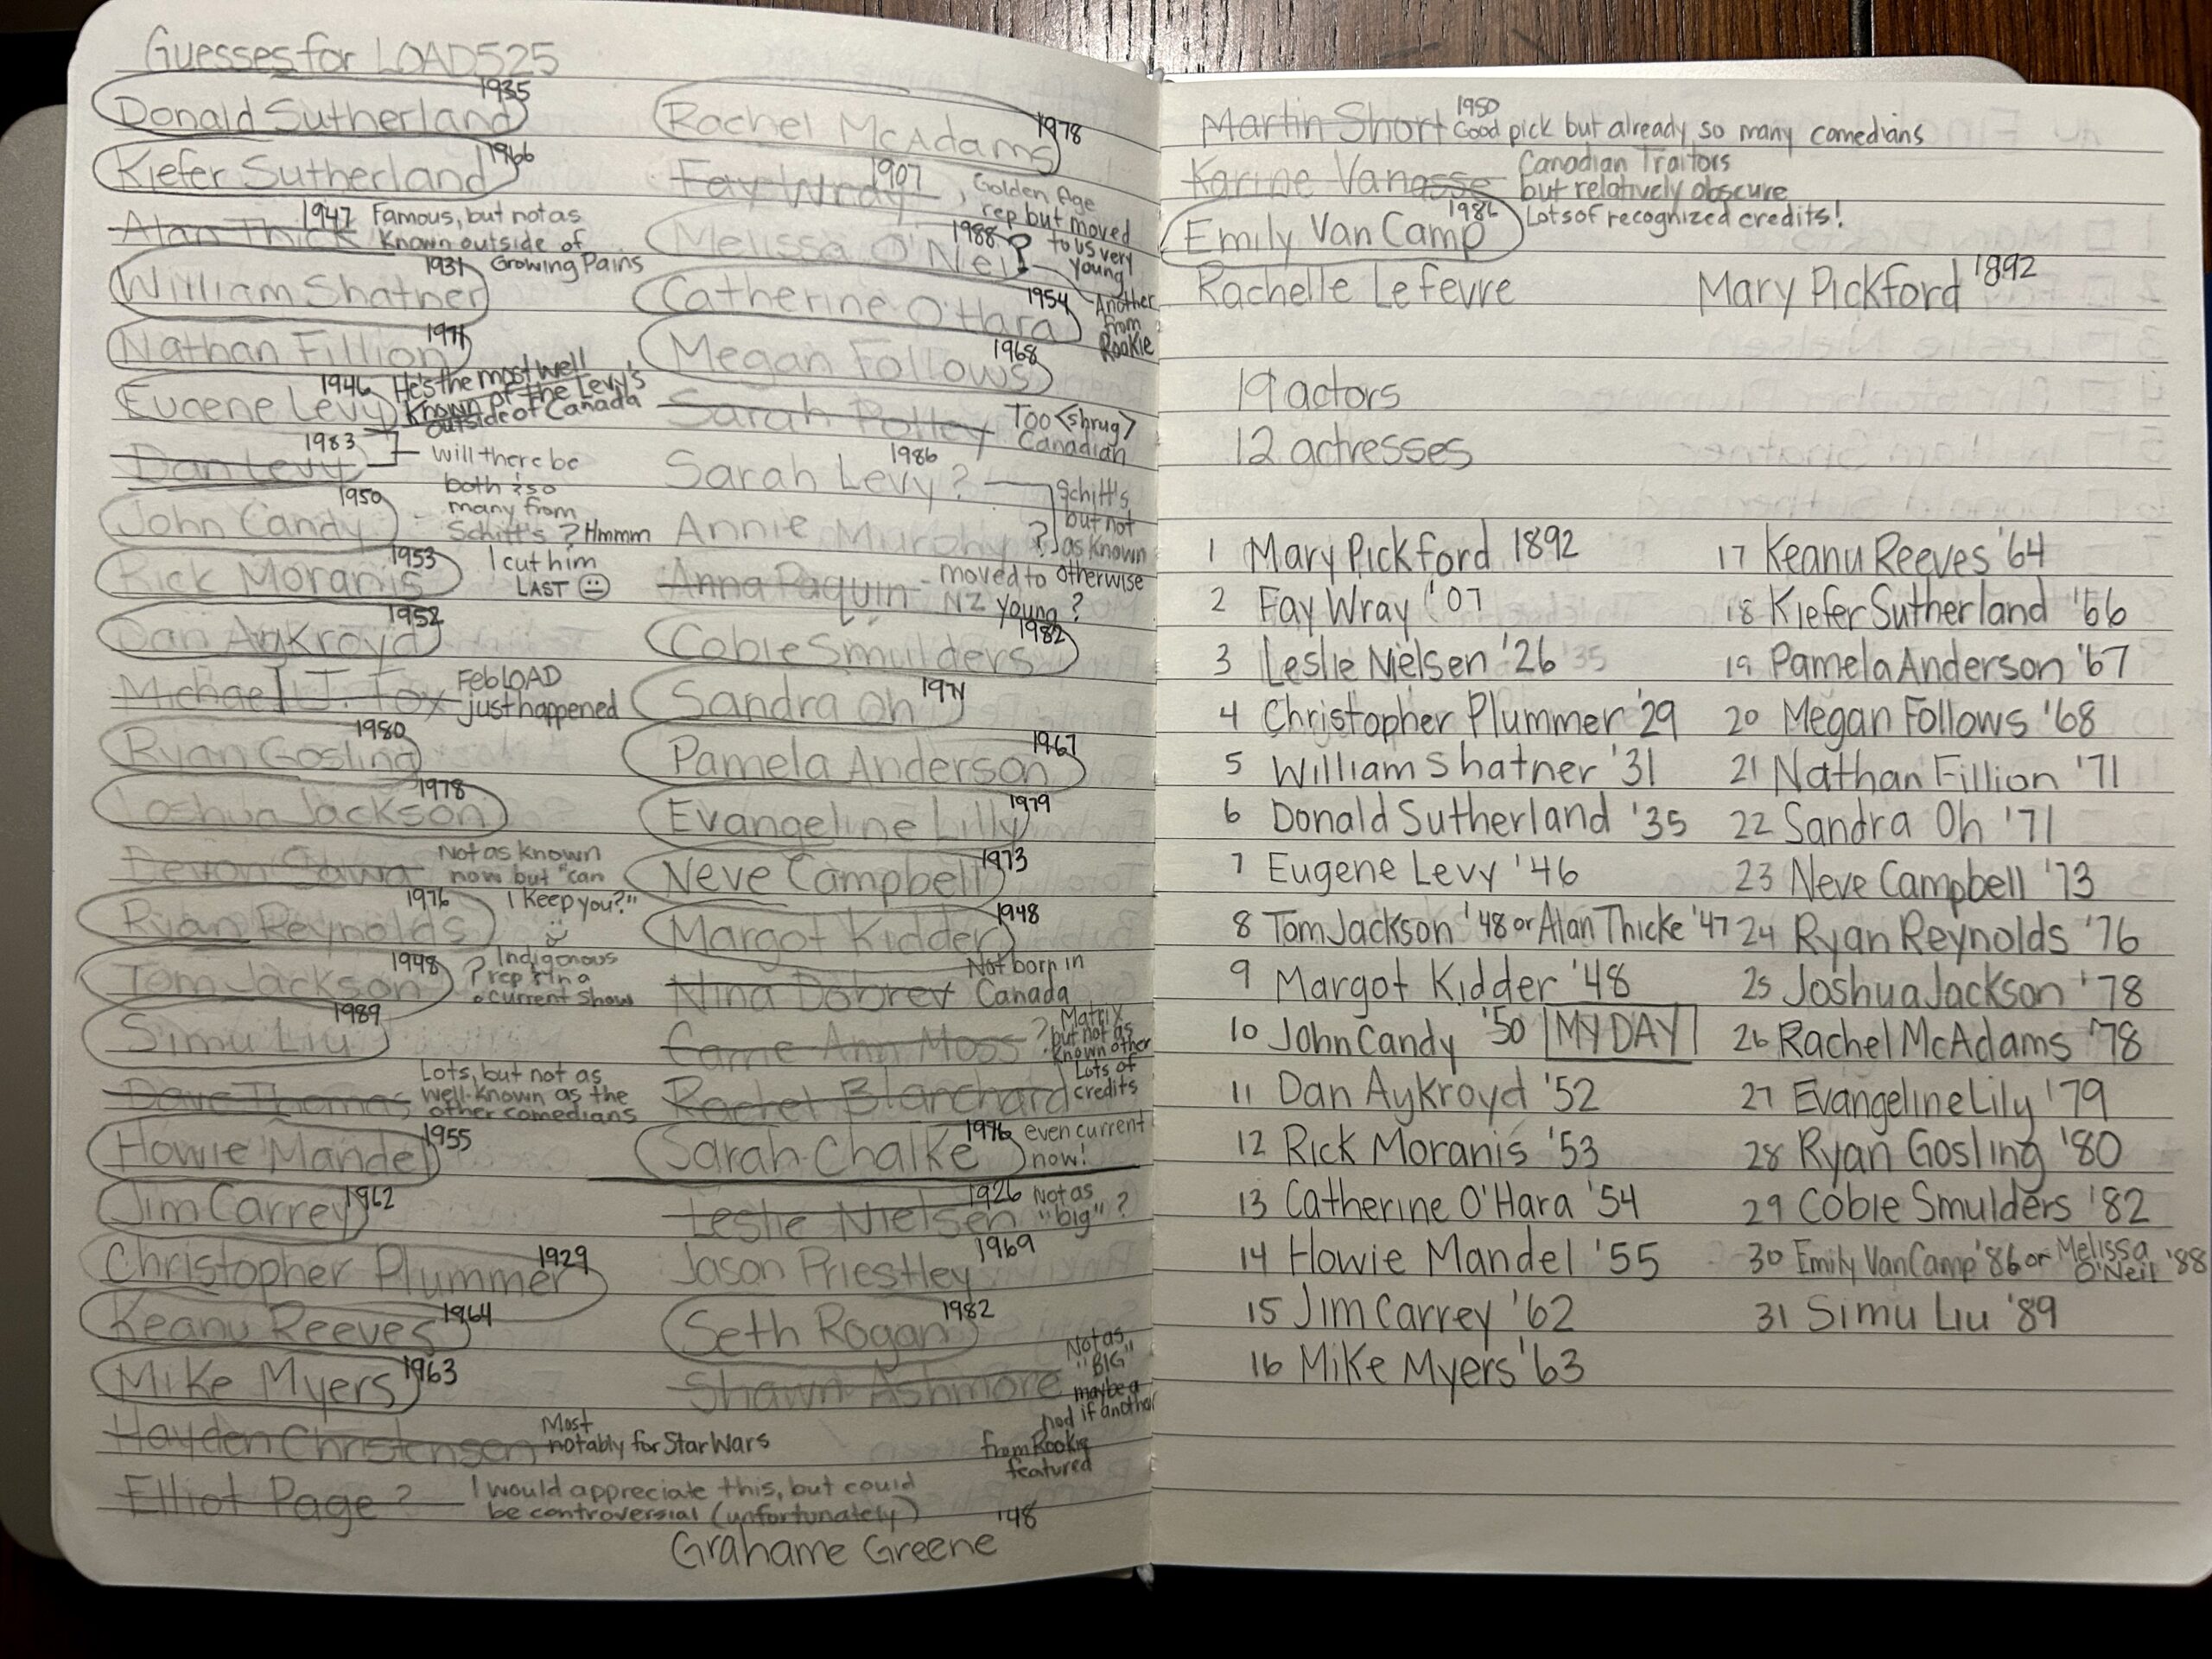 Guesses for LOAD525
Donald Sutherland 1935
Kiefer Sutherland 1966
Alan Thick 1947 Famous, but not as
known outside of
Growing Pains
William Shatner 1931
Nathan Fillion 1971
Eugene Levy 1946 He's the most well
known of the Levy's
outside of Canada
Dan Levy 1983
will there be
both & so
many from
Schitt's? Hmmm
John Candy 1950
Rick Moranis 1953 I cut him
LAST
Dan Aykroyd 1952
Michael J. Fox Feb LOAD
just happened
Ryan Gosling 1980
Joshua Jackson 1978
Devon Sawa Not as known
now but "can
I keep you?"
Ryan Reynolds 1976
Tom Jackson 1948 ? Indigenous
rep & in a
current show
Simu Liu 1989
Dave Thomas Lots, but not as
well-known as the
other comedians
Howie Mandel 1955
Jim Carrey 1962
Christopher Plummer 1929
Keanu Reeves 1964
Mike Myers 1963
Hayden Christensen Most
notably for Star Wars
Elliot Page? I would appreciate this, but could
be controversial (unfortunately)
Rachel McAdams 1978
Fay Wray 1907, Golden Age
rep but moved
to US very
young
Melissa O'Neil 1988 ?
Another
from
Rookie
Catherine O'Hara 1954
Megan Follows 1968
Sarah Polley Too <shrug>
Canadian
Sarah Levy? 1986
Annie Murphy ?
Schitt's
but not
as known
otherwise
Anna Paquin - moved to
NZ young?
Cobie Smulders 1982
Sandra Oh 1971
Pamela Anderson 1967
Evangeline Lilly 1979
Neve Campbell 1973
Margot Kidder 1948
Nina Dobrev Not born in
Canada
Carrie Ann Moss ? Matrix
but not as
known other
Rachel Blanchard Lots of
credits
Sarah Chalke 1976 even current
now!
Leslie Nielsen 1926 Not as
"big"?
Jason Priestley 1969
Seth Rogan 1982
Shawn Ashmore Not as
"BIG"
maybe a
nod if another
from Rookie
featured
Grahame Greene '48
Martin Short 1950 Good pick but already so many comedians
Karine Vanasse Canadian Traitors
but relatively obscure
Emily Van Camp 1986 Lots of recognized credits!
Rachelle Lefevre Mary Pickford 1892
19 actors
12 actresses
1 Mary Pickford 1892
2 Fay Wray '07
3 Leslie Nielsen '26
4 Christopher Plummer '29
5 William Shatner '31
6 Donald Sutherland '35
7 Eugene Levy '46
8 Tom Jackson '48 or Alan Thicke '47
9 Margot Kidder '48
10 John Candy '50 MY DAY
11 Dan Aykroyd '52
12 Rick Moranis '53
13 Catherine O'Hara '54
14 Howie Mandel '55
15 Jim Carrey '62
16 Mike Myers '63
17 Keanu Reeves '64
18 Kiefer Sutherland '66
19 Pamela Anderson '67
20 Megan Follows '68
21 Nathan Fillion '71
22 Sandra Oh '71
23 Neve Campbell '73
24 Ryan Reynolds '76
25 Joshua Jackson '78
26 Rachel McAdams '78
27 Evangeline Lily '79
28 Ryan Gosling '80
29 Cobie Smulders '82
30 Emily VanCamp '86 or Melissa
O'Neil '88
31 Simu Liu '89